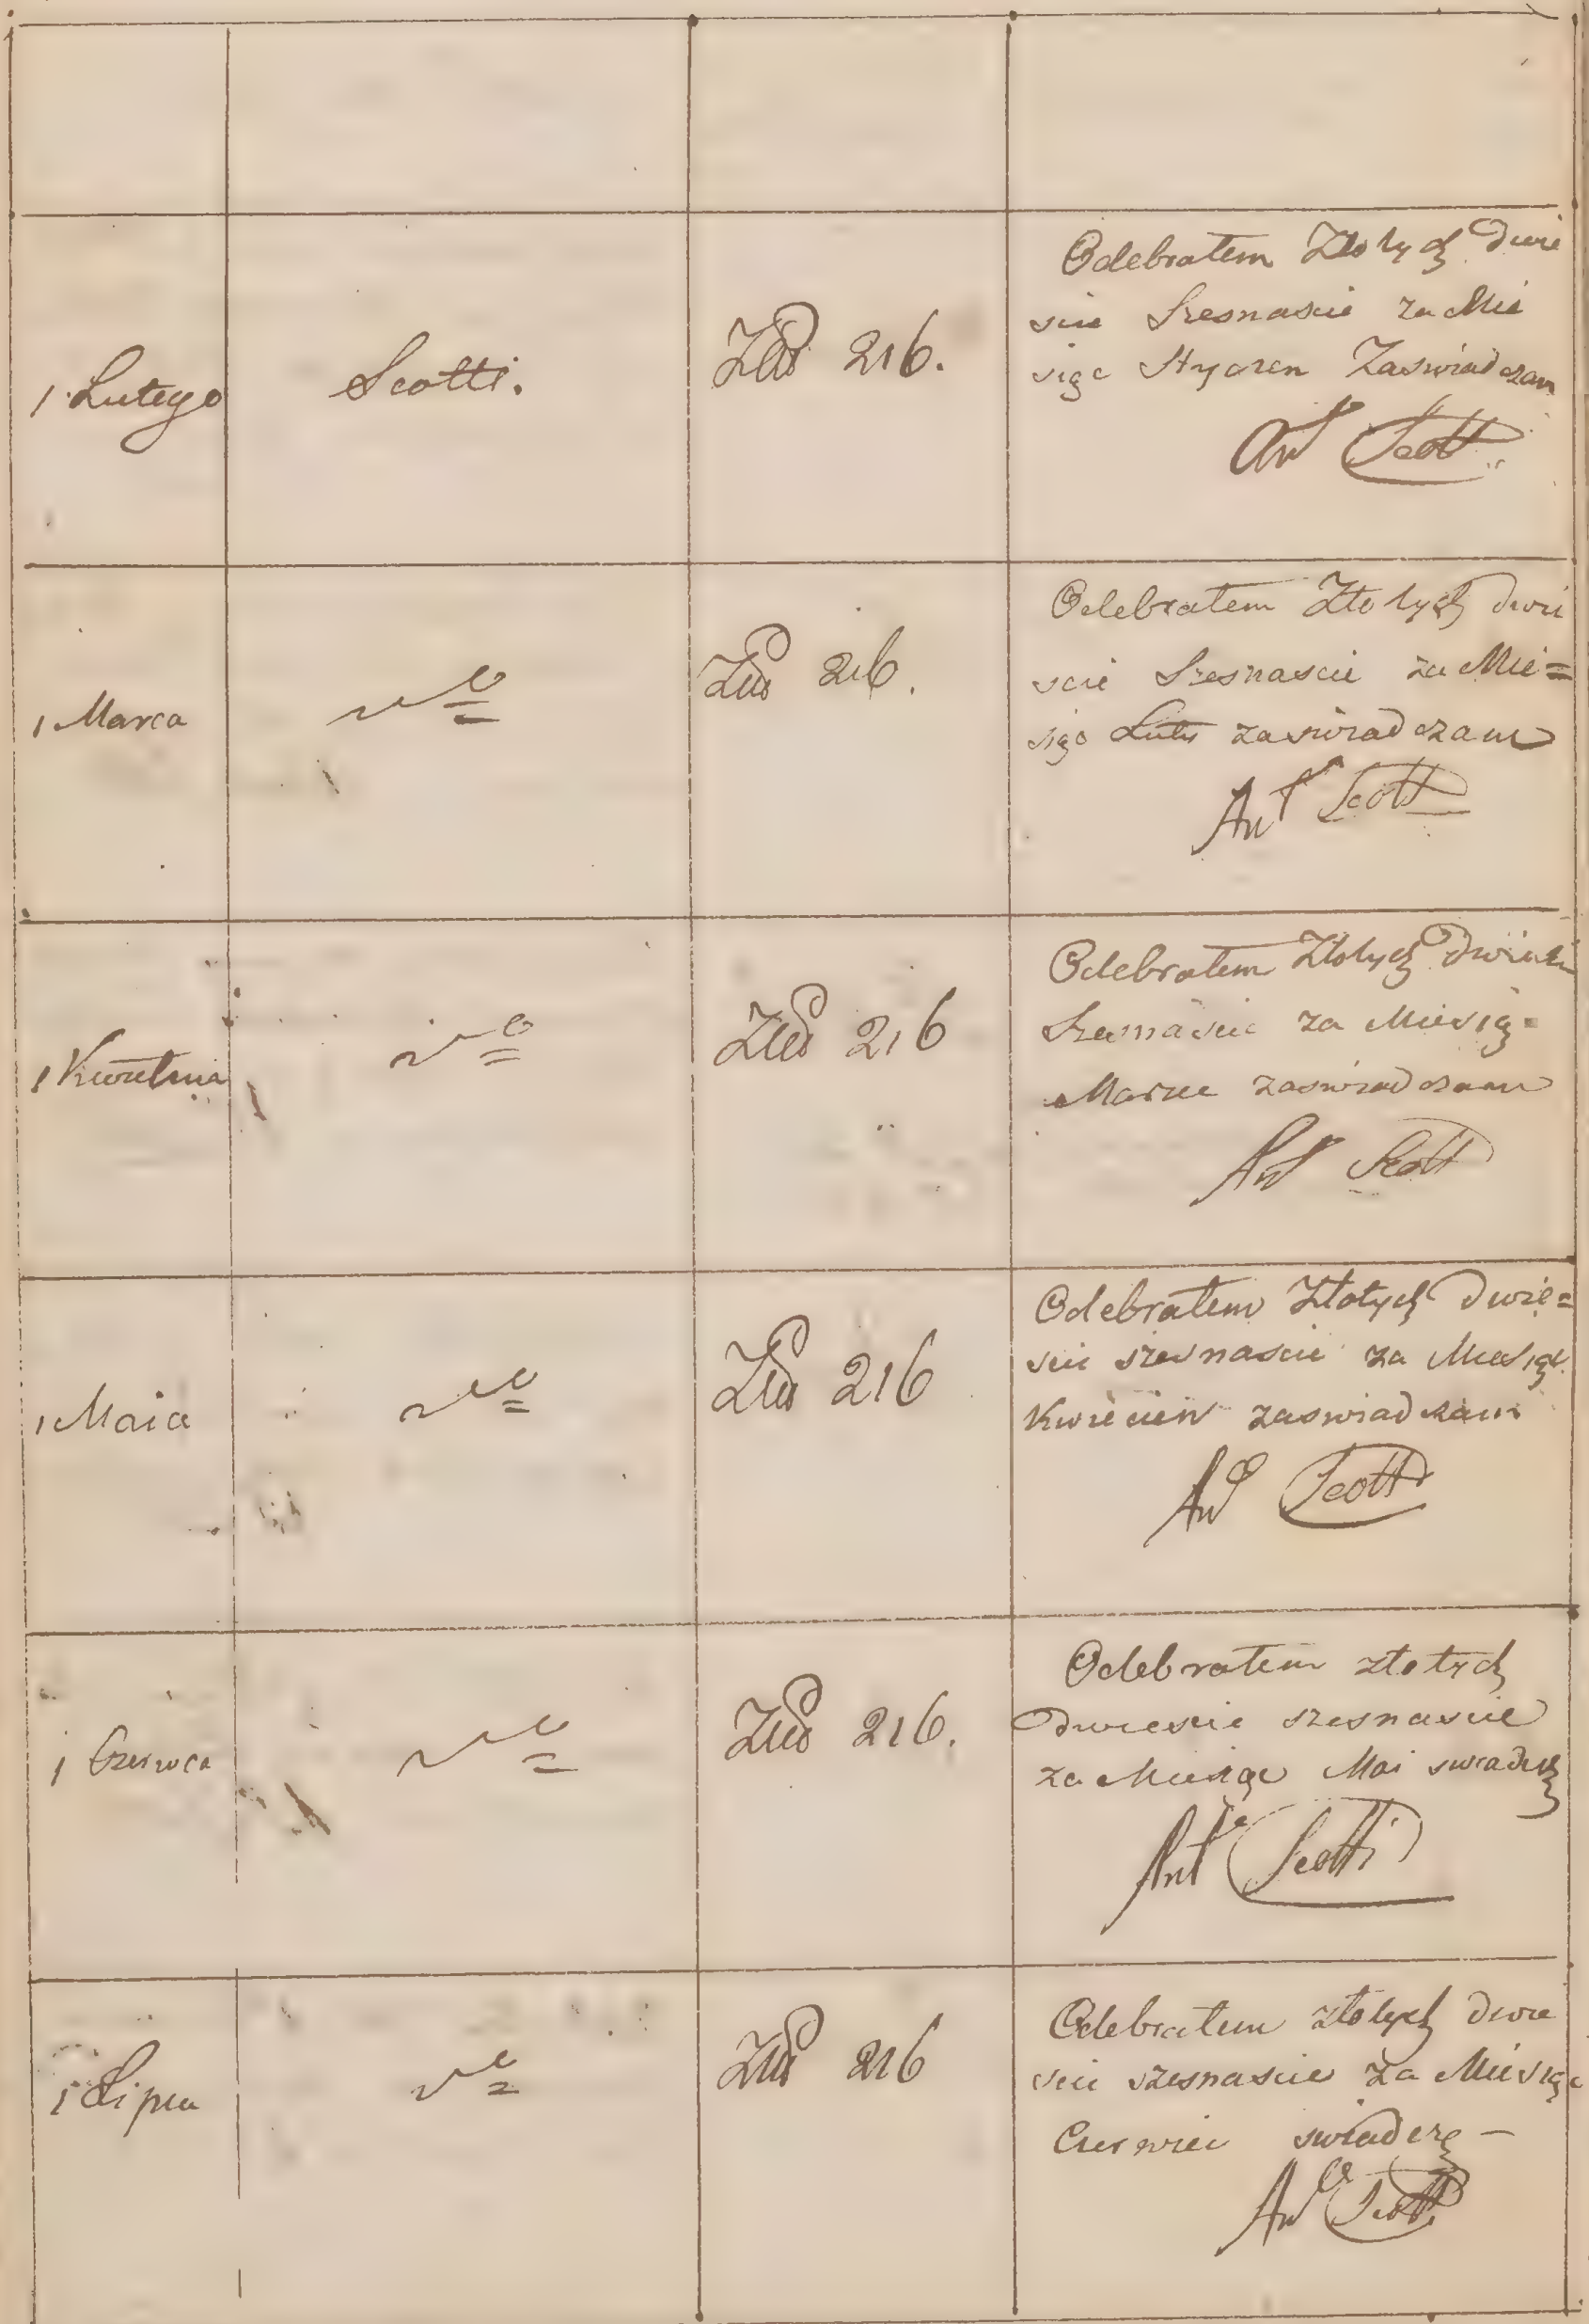 1 Lutego
Scotti.
216.
Odebrałem Złotych Dwie
scie Szesnascie za Mie
siąc Styczen Zaswiadczam
Ant Scotti
1 Marca
216.
Odebrałem Złotych dwie
scie Szesnascie za Mie=
siąc Luty zaswiadczam
Ant Scotti
1 Kwietnia
216
Odebrałem Złotych Dwiescie
Szesnascie za Miesią=
Marzec zaswiadczam
Ant Scotti
1 Maia
216
Odebrałem Złotych Dwie=
scie szesnascie za Miesiąc
Kwiecien zaswiadczam
Ant Scotti
1 Czerwca
216.
Odebrałem złotych
Dwiescie szesnascie
za Miesiąc Mai swiadczę
Ant Scotti
1 Lipca
216
Odebrałem złotych dwie
scie szesnascie za Miesiąc
Czerwiec swiadczę –
Ant Scotti